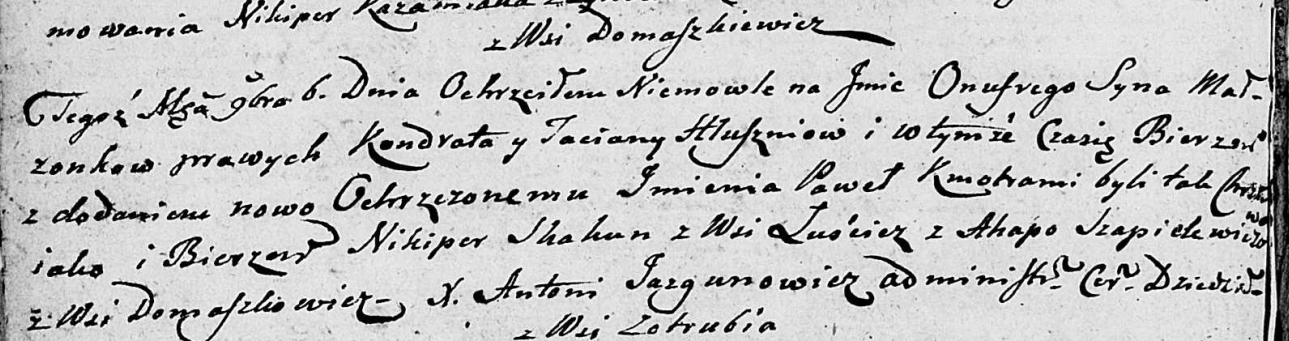 mowania Nikiper Kazamiaka
z Wsi Domaszkiewicz
Tegoż Msca 9bra 6. Dnia Ochrzciłem Niemowle na Jmie Onufrego Syna Mał-
zonkow prawych Kondrata y Taciany Hłuszniow i w tymże Czasię Bierzow
z dodaniem nowo Ochrzczonemu Jmienia Paweł Kmotrami byli tak Chrztu
iako i Bierzow Nikiper Skakun z Wsi Luścicz z Ahapo Szapielewiczow
z Wsi Domaszkowicz X. Antoni Jazgunowicz administr. Cer. Dziedził-
z Wsi Zotrubia